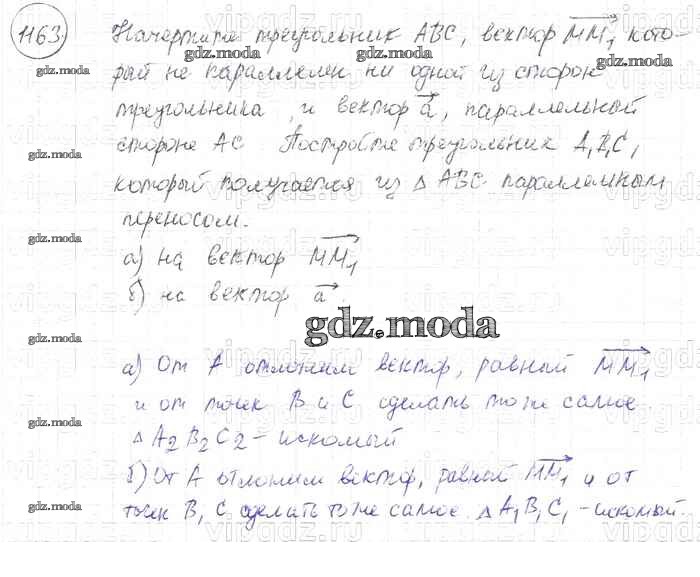 1163. Начертите треугольник ABC, вектор MM₁, кото-
рый не параллелен ни одной из сторон
треугольника, и вектор a, параллельный
стороне AC. Постройте треугольник A₁B₁C₁,
который получается из △ ABC параллельным
переносом.
а) на вектор MM₁
б) на вектор a.
gdz.moda
а) От A отложим вектор, равный MM₁
и от точек B и C сделать то же самое
△ A₂B₂C₂ - искомый
б) От A отложим вектор, равный MM₁ и от
точек B, C сделать то же самое. △ A₁B₁C₁ - искомый.